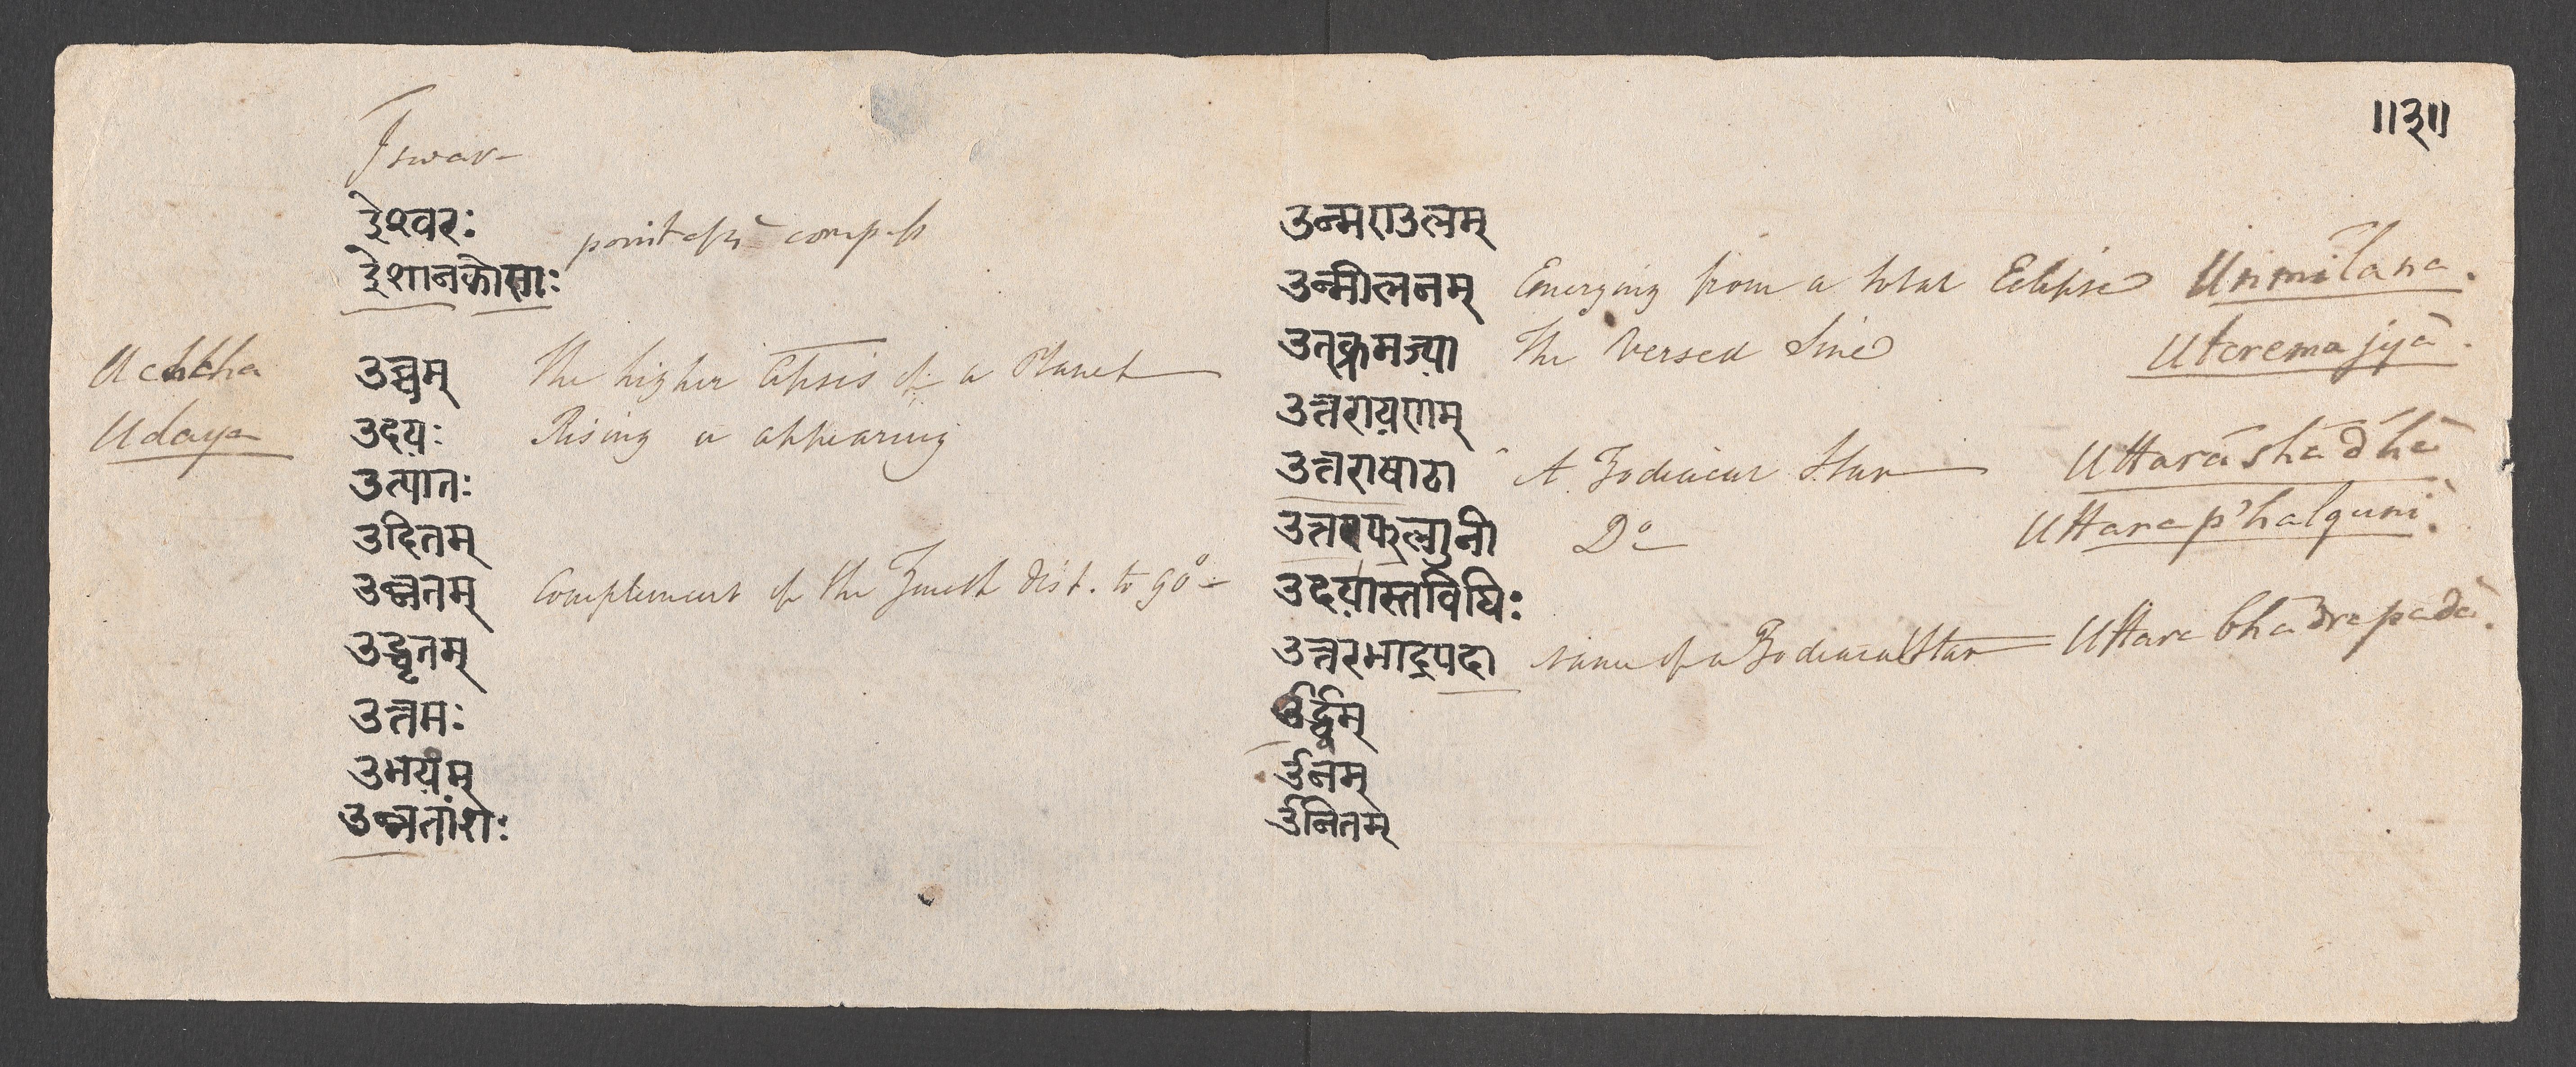 ॥३॥
Iswar
ईश्वरः
ईशानकोणः point of ye compass
Uchcha उच्चम् The higher Apsis of a Planet
Udaya उदयः Rising or appearing
उत्पातः
उदितम्
उन्नतम् Complement of the Zenith dist. to 90°
उद्धृतम्
उत्तमः
उभयम्
उन्नतांशाः
उन्मण्डलम्
उन्मीलनम् Emerging from a total Eclipse Unmilana.
उत्क्रमज्या The Versed Sine Utcremajyā.
उत्तरायणम्
उत्तराषाढा A Zodiacal Star Uttarāshādhā
उत्तरफल्गुनी Do Uttarap'halguni.
उदयास्तविधिः
उत्तरभाद्रपदा name of a Zodiacal Star Uttarabhādrapadā.
ऊर्द्ध्वम्
ऊनम्
ऊनितम्